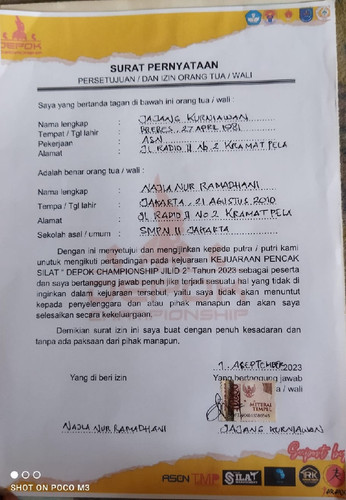 DEPOK
SURAT PERNYATAAN
PERSETUJUAN / DAN IZIN ORANG TUA / WALI
Saya yang bertanda tagan di bawah ini orang tua / wali :
Nama lengkap : JAJANG KURNIAWAN
Tempat / Tgl lahir : BREBES, 27 APRL 1981
Pekerjaan : ASN
Alamat : JL RADIO II No 2 KRAMAT PELA
Adalah benar orang tua / wali :
Nama lengkap : NAJLA NUR RAMADHANI
Tempa / Tgl lahir : JAKARTA, 21 AGUSTUS 2010
Alamat : JL RADIO II NO 2 KRAMAT PELA
Sekolah asal / umum : SMPN 11 JAKARTA
Dengan ini menyetujui dan mengijinkan kepada putura / putri kami
unutuk mengikuti pertandingan pada kejuaraan KEJUARAAN PENCAK
SILAT " DEPOK CHAMPIONSHIP JILID 2" Tahun 2023 sebagai peserta
dan saya bertanggung jawab penuh jike terjadi sesuatu hal yang tidak di
inginkan dalam kejuaraan tersebut, yaitu saya tidak akan menuntut
kepada penyelenggara dan atau pihak manapun dan akan saya
selesaikan secara kekeluargaan.
Demikian surat izin ini saya buat dengan penuh kesadaran dan
tanpa ada paksaan dari pihak manapun.
2023
Yang di beri izin
Yang bertanggung jawab
a / wali
METERAI
TEMPEL
NAJLA NUR RAMADHANI
JAJANG KURNIAWAN
Support by
SILAT
SHOT ON POCO M3